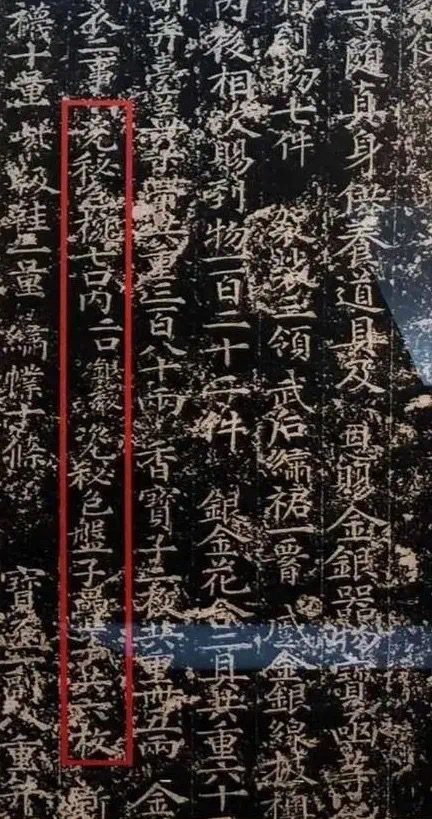 寺随真身供養道具及恩賜金銀器物寶函等
到物七件 袈裟三領 武后繡裙一腰 蹙金銀線披襖
内後相次賜到物一百二十二件 銀金花合二具共重六十
副并臺蓋朶帶共重三百八十兩 香寶子二枚共重卌五兩 金
衣二事 瓷秘色椀七口内二口銀稜 瓷秘色盤子疊子共六枚 新
襪十量 紫靸鞋二量 繡幞十條 寶函一副八重并